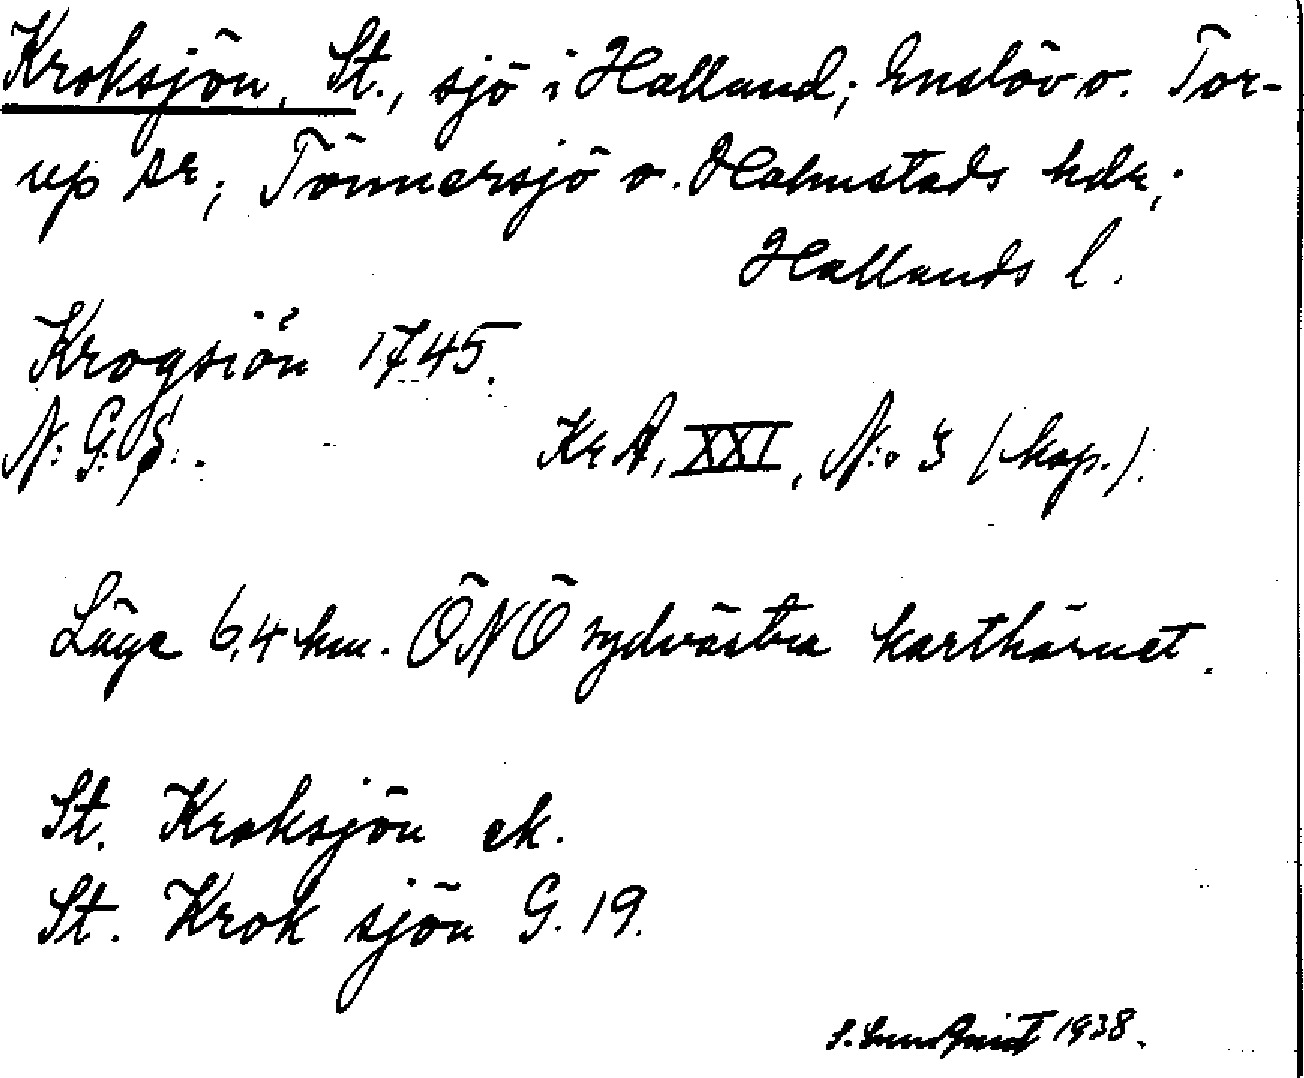 Kroksjön, St., sjö i Halland; Enslöv o. Tor-
up sr; Tönnersjö o. Halmstads hdr;
Hallands l.
Krogsiön 1745.
N. G. S. KrA, XXI, N:o 3 (kop.).
Läge 6,4 km. ÖNÖ sydvästra karthörnet.
St. Kroksjön ek.
St. Krok sjön G. 19.
S. Lundquist 1938.